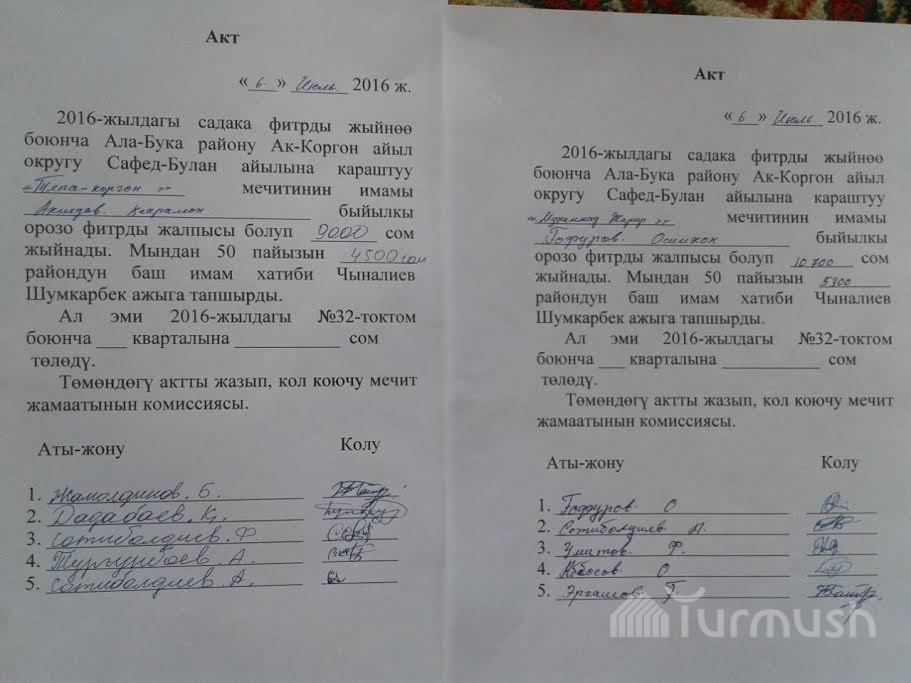 Акт
«6» Июль 2016 ж.
2016-жылдагы садака фитрды жыйнөө
боюнча Ала-Бука району Ак-Коргон айыл
округу Сафед-Булан айылына караштуу
«Тепа-коргон» мечитинин имамы
Ахмедов Кахрамон быйылкы
орозо фитрды жалпысы болуп 9000 сом
жыйнады. Мындан 50 пайызын 4500 сом
райондун баш имам хатиби Чыналиев
Шумкарбек ажыга тапшырды.
Ал эми 2016-жылдагы №32-токтом
боюнча ___ кварталына ____________ сом
төлөдү.
Төмөндөгү актты жазып, кол коючу мечит
жамаатынын комиссиясы.
Аты-жону Колу
1. Жамолдинов. Б.
2. Дадабаев. К.
3. Сотиболдиев. Ф.
4. Тургунбаев. А.
5. Сотиболдиев А.
Акт
«6» Июль 2016 ж.
2016-жылдагы садака фитрды жыйнөө
боюнча Ала-Бука району Ак-Коргон айыл
округу Сафед-Булан айылына караштуу
«Мухаммад Жарир» мечитинин имамы
Гофуров. Осимхон быйылкы
орозо фитрды жалпысы болуп 10700 сом
жыйнады. Мындан 50 пайызын 5300
райондун баш имам хатиби Чыналиев
Шумкарбек ажыга тапшырды.
Ал эми 2016-жылдагы №32-токтом
боюнча ___ кварталына ____________ сом
төлөдү.
Төмөндөгү актты жазып, кол коючу мечит
жамаатынын комиссиясы.
Аты-жону Колу
1. Гофуров О
2. Сотиболдиев
3. Ф.
4. Аббосов О
5. Эргашов Г
Turmush